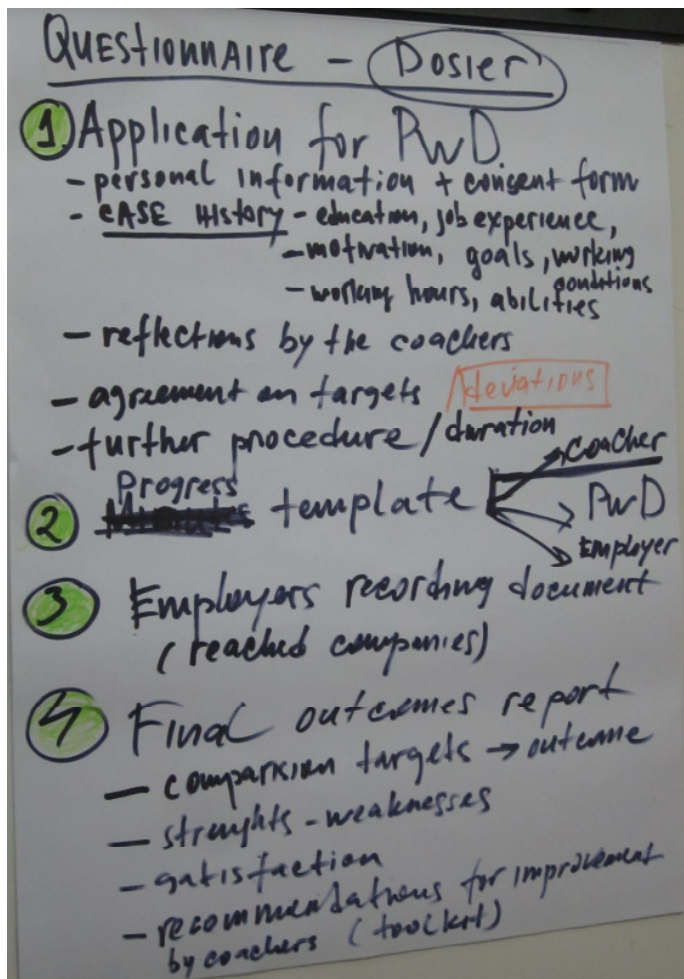 QUESTIONNAIRE - DOSIER
1 Application for PWD
- personal information + consent form
- CASE HISTORY - education, job experience,
- motivation, goals, working conditions
- working hours, abilities
- reflections by the coachers
- agreement on targets / deviations
- further procedure / duration
2 Progress template coacher
PWD
EMployer
3 Employers recording document
(reached companies)
4 Final outcomes report
- comparksion targets → outcome
- strenghts - weaknesses
- satisfaction
- recommendations for improvement
by coachers (toolkit)